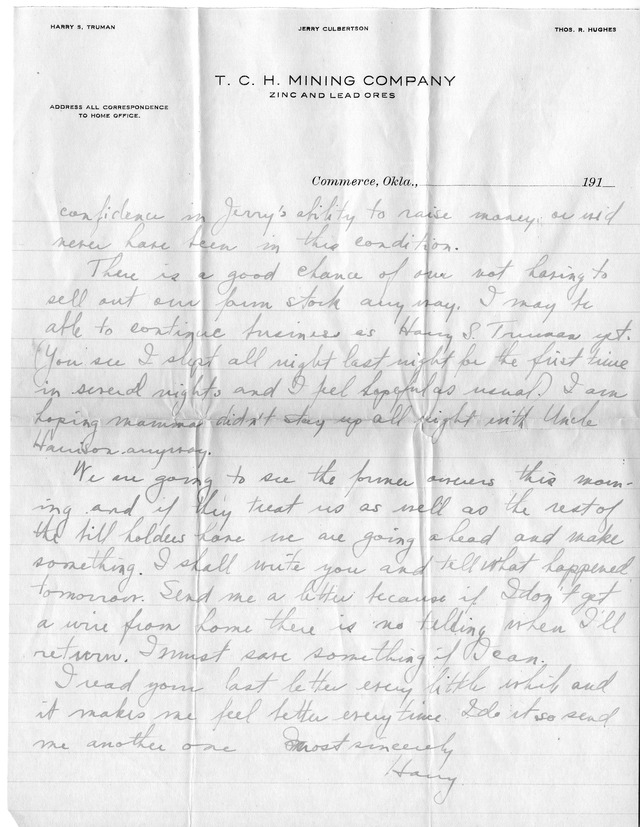 HARRY S. TRUMAN JERRY CULBERTSON THOS. R. HUGHES
T. C. H. MINING COMPANY
ZINC AND LEAD ORES
ADDRESS ALL CORRESPONDENCE
TO HOME OFFICE.
Commerce, Okla., 191
confidence in Jerry's ability to raise money or we'd
never have been in this condition.
There is a good chance of our not having to
sell out our farm stock anyway. I may be
able to continue business as Harry S. Truman yet.
You see I slept all night last night for the first time
in several nights and I feel hopeful as usual. I am
hoping mamma didn't stay up all night with Uncle
Harrison anyway.
We are going to see the former owners this morn-
ing and if they treat us as well as the rest of
the bill holders have we are going ahead and make
something. I shall write you and tell what happened
tomorrow. Send me a letter because if I don't get
a wire from home there is no telling when I'll
return. I must save something if I can.
I read your last letter every little while and
it makes me feel better every time I do it so send
me another one Most sincerely
Harry